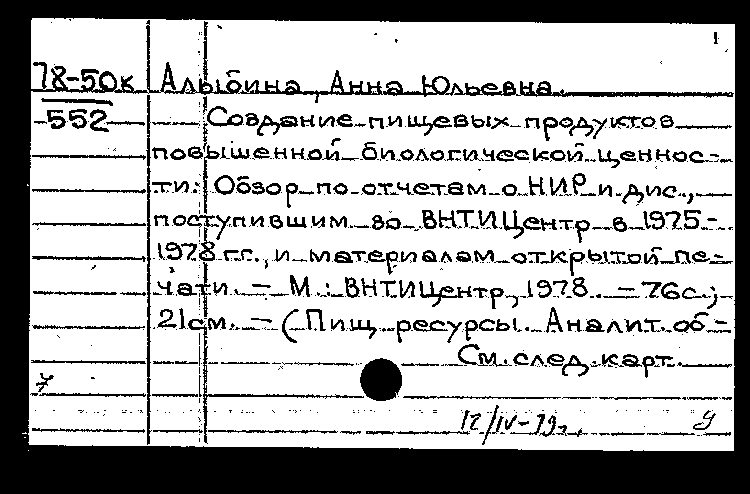 1
78-50к Алыбина, Анна Юльевна.
552 Создание пищевых продуктов
повышенной биологической ценнос-
ти: Обзор по отчетам о НИР и дис.,
поступившим во ВНТИЦентр в 1975-
1978 гг., и материалам открытой пе-
чати. — М.: ВНТИЦентр, 1978. — 76с.;
21см. — (Пищ. ресурсы. Аналит. об-
См. след. карт.
7
12/IV-79г.